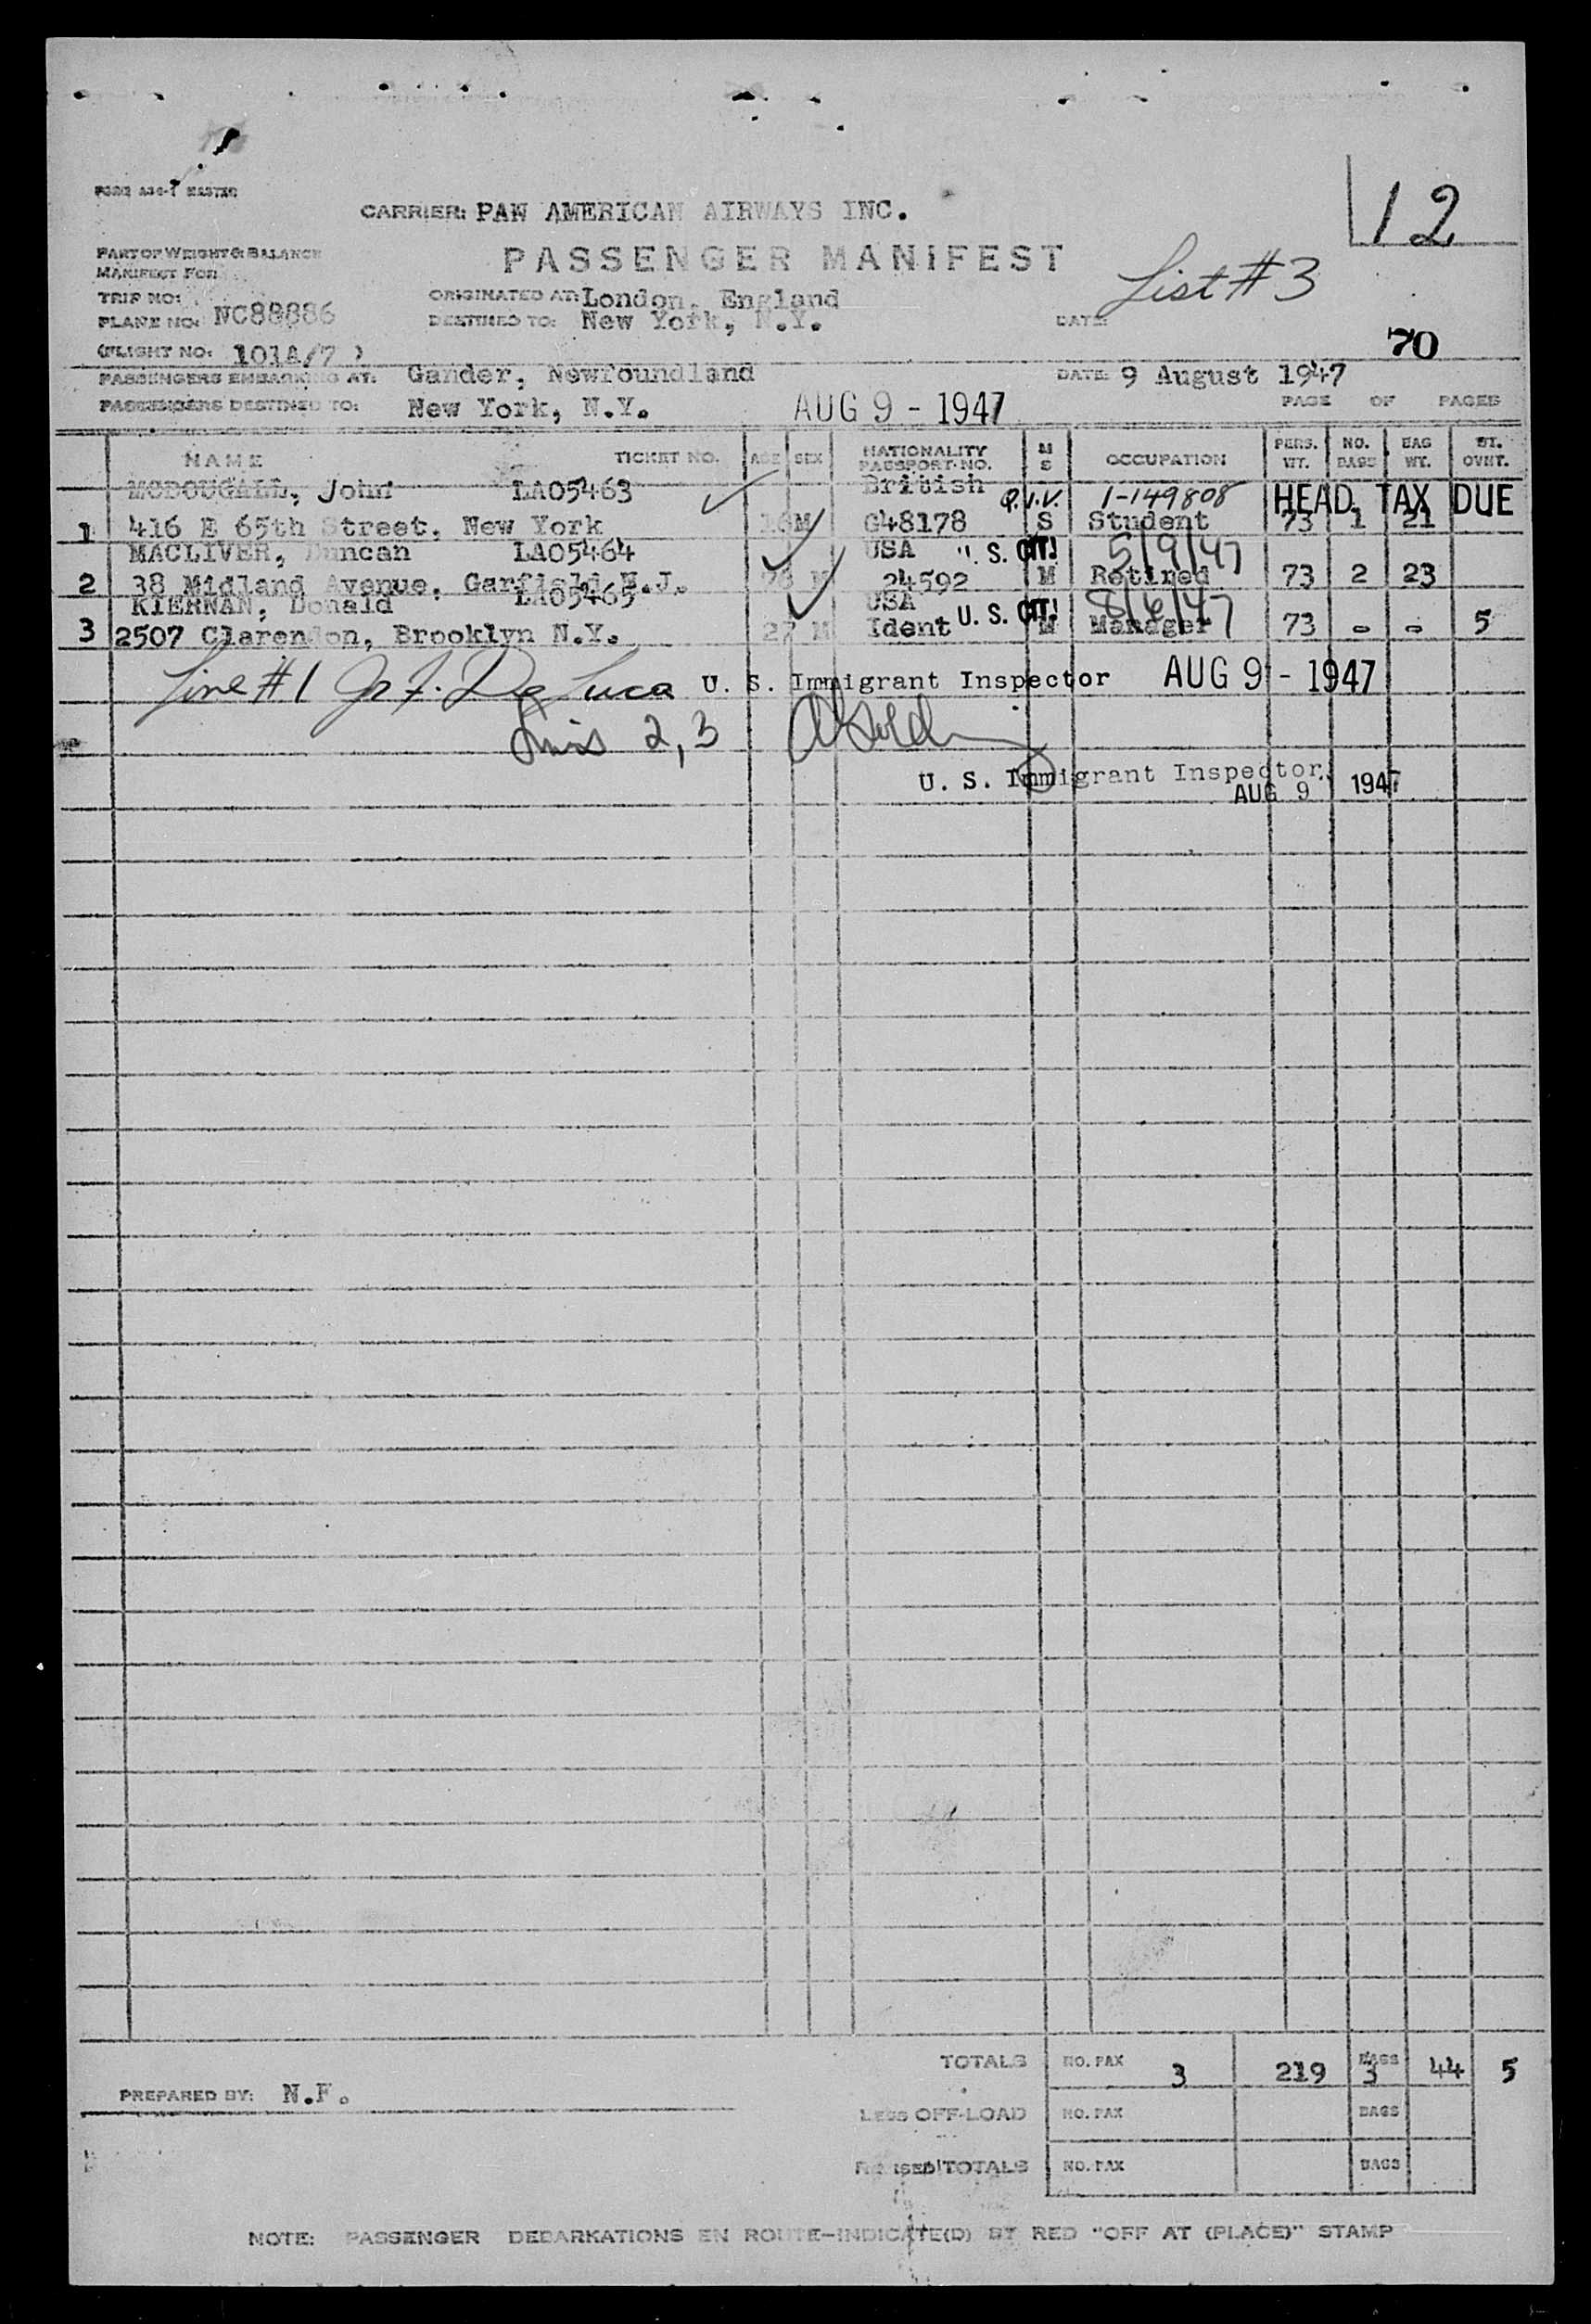 FORM ASC-1 MASTER
12
CARRIER: PAN AMERICAN AIRWAYS INC.
PART OF WEIGHT & BALANCE
MANIFEST FOR
PASSENGER MANIFEST
List #3
TRIP NO:
ORIGINATED AT: London, England
PLANE NO: NC88886
DESTINED TO: New York, N.Y.
DATE:
70
(FLIGHT NO: 101A/7 )
PASSENGERS EMBARKING AT: Gander, Newfoundland
DATE: 9 August 1947
PASSENGERS DESTINED TO: New York, N.Y. AUG 9 - 1947
PAGE OF PAGES
NAME TICKET NO. AGE SEX NATIONALITY PASSPORT NO. M S OCCUPATION PERS. WT. NO. BAGS BAG WT. WT. OVNT.
MCDOUGALL, John LA05463 British Q.I.V. 1-149808 HEAD TAX DUE
1 416 E 65th Street, New York 18 M G48178 S Student 73 1 21
MACLIVER, Duncan LA05464 USA U. S. CIT! 5/9/47
2 38 Midland Avenue, Garfield N.J. M 24592 M Retired 73 2 23
KIERNAN, Donald LA05465 USA U. S. CIT! 8/6/47
3 2507 Clarendon, Brooklyn N.Y. 27 M Ident M Manager 73 - - 5
Line #1 De Luca U. S. Immigrant Inspector AUG 9 - 1947
Lines 2, 3
U. S. Immigrant Inspector.
AUG 9 1947
TOTALS NO. PAX 3 219 BAGS 3 44 5
PREPARED BY: N.F.
LESS OFF-LOAD NO. PAX BAGS
REVISED TOTALS NO. PAX BAGS
NOTE: PASSENGER DEBARKATIONS EN ROUTE-INDICATE(D) BY RED "OFF AT (PLACE)" STAMP